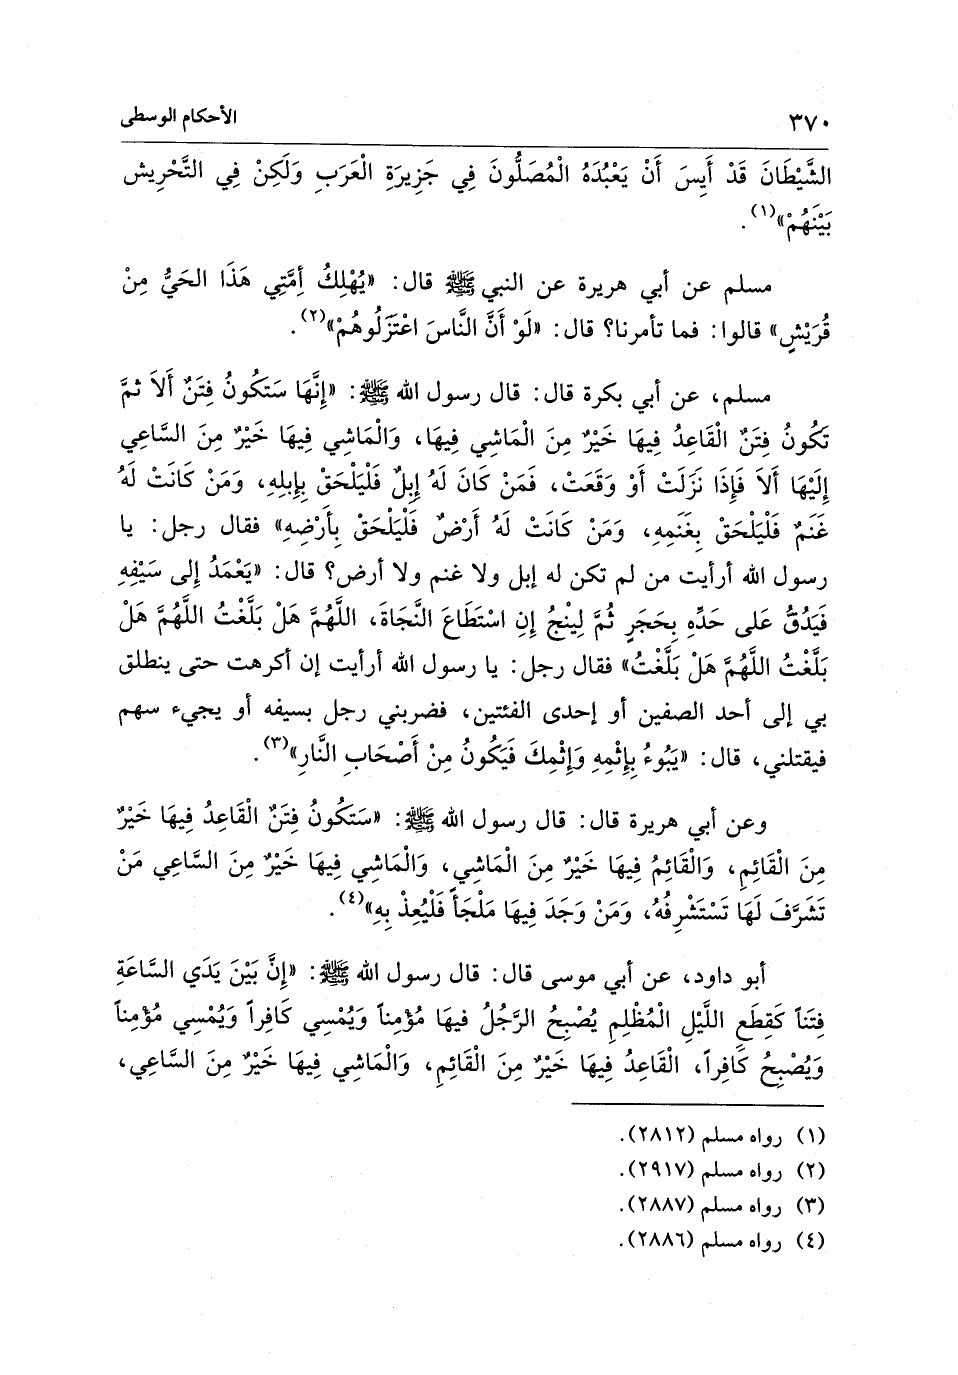 ٣٧٠ الأحكام الوسطى
الشَّيْطَانَ قَدْ أَيِسَ أَنْ يَعْبُدَهُ الْمُصَلُّونَ فِي جَزِيرَةِ الْعَرَبِ وَلَكِنْ فِي التَّحْرِيش
بَيْنَهُمْ»(١).
مسلم عن أبي هريرة عن النبي ﷺ قال: «يُهْلِكُ أمَّتِي هَذَا الحَيُّ مِنْ
قُرَيْشٍ» قالوا: فما تأمرنا؟ قال: «لَوْ أَنَّ النَّاسَ اعْتَزَلُوهُمْ»(٢).
مسلم، عن أبي بكرة قال: قال رسول الله ﷺ: «إِنَّهَا سَتَكُونُ فِتَنٌ أَلَا ثمَّ
تَكُونُ فِتَنٌ الْقَاعِدُ فِيهَا خَيْرٌ مِنَ الْمَاشِي فِيهَا، وَالْمَاشِي فِيهَا خَيْرٌ مِنَ السَّاعِي
إِلَيْهَا أَلاَ فَإِذَا نَزَلَتْ أَوْ وَقَعَتْ، فَمَنْ كَانَ لَهُ إِبِلٌ فَلْيَلْحَقْ بِإِبلِهِ، وَمَنْ كَانَتْ لَهُ
غَنَمٌ فَلْيَلْحَقْ بِغَنَمِهِ، وَمَنْ كَانَتْ لَهُ أَرْضٌ فَلْيَلْحَقْ بِأَرْضِهِ» فقال رجل: يا
رسول الله أرأيت من لم تكن له إبل ولا غنم ولا أرض؟ قال: «يَعْمَدُ إِلى سَيْفِهِ
فَيَدُقُّ عَلى حَدِّهِ بِحَجَرٍ ثُمَّ لِينْجُ إِنِ اسْتَطَاعَ النَّجَاةَ، اللَّهُمَّ هَلْ بَلَّغْتُ اللَّهُمَّ هَلْ
بَلَّغْتُ اللَّهُمَّ هَلْ بَلَّغْتُ» فقال رجل: يا رسول الله أرأيت إن أكرهت حتى ينطلق
بي إلى أحد الصفين أو إحدى الفئتين، فضربني رجل بسيفه أو يجيء سهم
فيقتلني، قال: «يَبُوءُ بِإِثْمِهِ وَإِثْمِكَ فَيَكُونُ مِنْ أَصْحَابِ النَّارِ»(٣).
وعن أبي هريرة قال: قال رسول الله ﷺ: «سَتَكُونُ فِتَنٌ الْقَاعِدُ فِيهَا خَيْرٌ
مِنَ الْقَائِمِ، وَالْقَائِمُ فِيهَا خَيْرٌ مِنَ الْمَاشِي، وَالْمَاشِي فِيهَا خَيْرٌ مِنَ السَّاعِي مَنْ
تَشَرَّفَ لَهَا تَسْتَشْرِفُهُ، وَمَنْ وَجَدَ فِيهَا مَلْجَأً فَلْيُعِذْ بِهِ»(٤).
أبو داود، عن أبي موسى قال: قال رسول الله ﷺ: «إنَّ بَيْنَ يَدَي السَّاعَةِ
فِتَناً كَقِطَعِ اللَّيْلِ الْمُظْلِمِ يُصْبِحُ الرَّجُلُ فيهَا مُؤْمِناً وَيُمْسِي كَافِراً وَيُمْسِي مُؤْمِناً
وَيُصْبِحُ كَافِراً، الْقَاعِدُ فِيهَا خَيْرٌ مِنَ الْقَائِمِ، وَالْمَاشِي فِيهَا خَيْرٌ مِنَ السَّاعِي،
(١) رواه مسلم (٢٨١٢).
(٢) رواه مسلم (٢٩١٧).
(٣) رواه مسلم (٢٨٨٧).
(٤) رواه مسلم (٢٨٨٦).